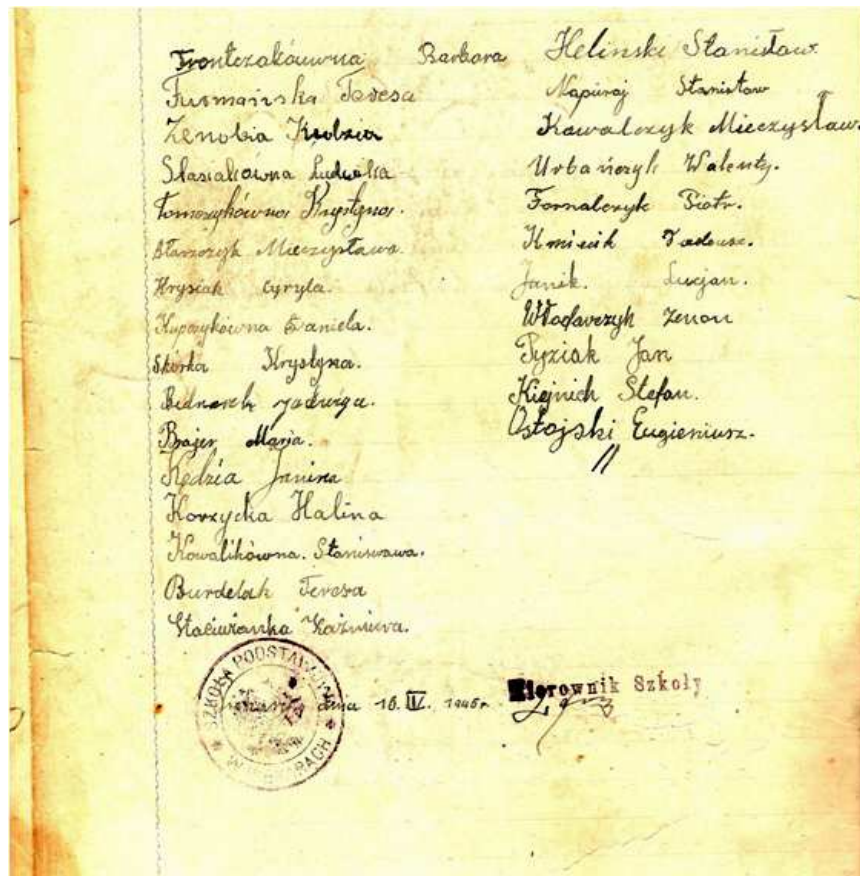 Frontczakówna Barbara
Furmańska Teresa
Zenobia Kudzia
Stasiakówna Ludwika
Tomczykówna Krystyna.
Starzczyk Mieczysława.
Krysiak Cyryla.
Kupczykówna Daniela.
Skórka Krystyna.
Bednarek Jadwiga.
Bajer Maria.
Kędzia Janina
Korzycka Halina
Kowalikówna. Stanisława.
Burdelak Teresa
Kaźmiera.
Heliński Stanisław.
Napieraj Stanisław
Kowalczyk Mieczysław.
Urbańczyk Walenty.
Fornalczyk Piotr.
Kmiecik Tadeusz.
Janik. Lucjan.
Włodarczyk Zenon
Pyziak Jan
Kiejnich Stefan.
Ostojski Eugieniusz.
SZKOŁA PODSTAWOWA
dnia 16. IV. 1945r.
Kierownik Szkoły